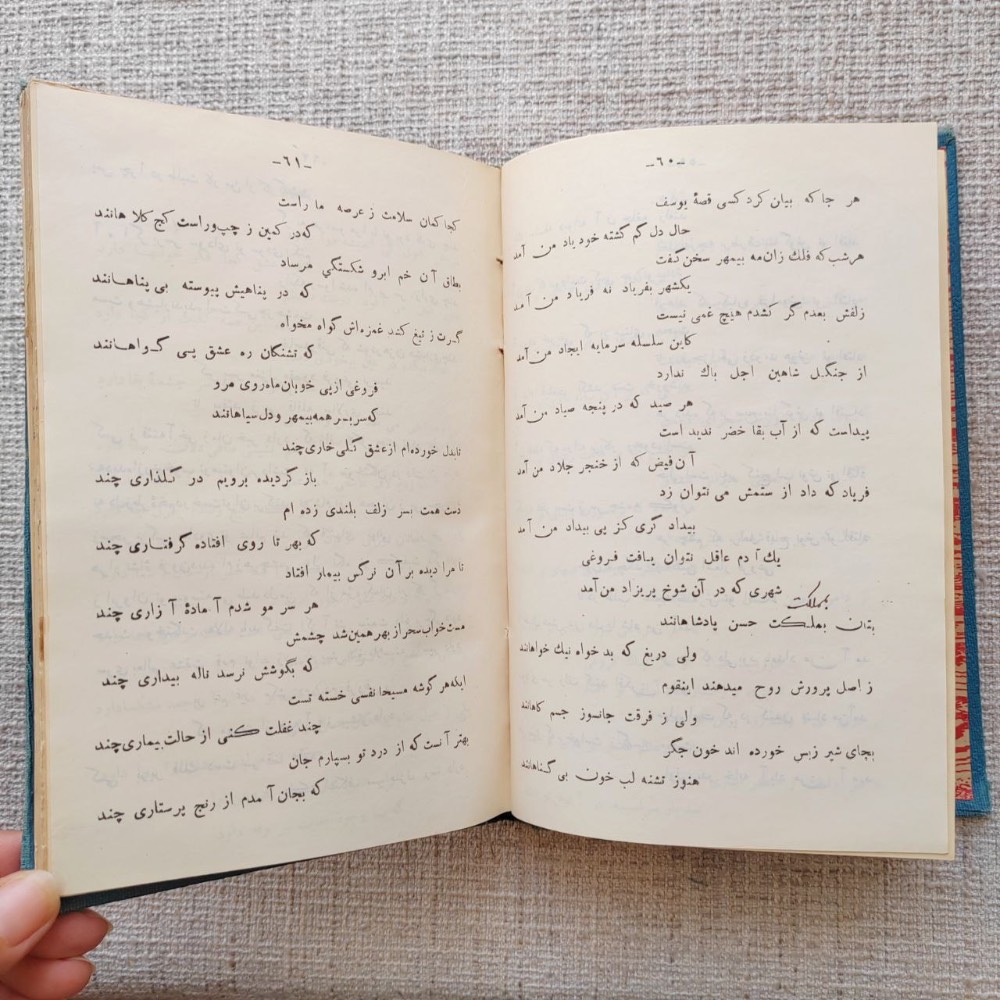 -٦٠-
هر جا که بیان کرد کسی قصهٔ یوسف
حال دل گم گشته خود یاد من آمد
هرشب که فلك زان مه بیمهر سخن گفت
یکشهر بفریاد نه فریاد من آمد
زلفش بعدم گر کشدم هیچ غمی نیست
کاین سلسله سرمایه ایجاد من آمد
از چنگل شاهین اجل باك ندارد
هر صید که در پنجه صیاد من آمد
پیداست که از آب بقا خضر ندید است
آن فیض که از خنجر جلاد من آمد
فریاد که داد از ستمش می نتوان زد
بیداد گری کز پی بیداد من آمد
یك آدم عاقل نتوان یافت فروغی
شهری که در آن شوخ پریزاد من آمد
بمملکت
بتان بمملکت حسن پادشاهانند
ولی دریغ که بد خواه نیك خواهانند
ز اصل پرورش روح میدهند اینقوم
ولی ز فرقت جانسوز جسم کاهانند
بجای شیر زبس خورده اند خون جگر
هنوز تشنه لب خون بی گناهانند
-٦١-
کجا کمان سلامت ز عرصه ما راست
که در کمین ز چپ و راست کج کلاهانند
بطاق آن خم ابرو شکستگی مرساد
که در پناهیش پیوسته بی پناهانند
گرت ز تیغ کشد غمزه‌اش گواه مخواه
که تشنگان ره عشق بی گواهانند
فروغی از پی خوبان ماه روی مرو
که سر بسر همه بیمهر و دل سیاهانند
تا بدل خورده‌ام از عشق گلی خاری چند
باز گردیده برویم در گلذاری چند
دست همت بسر زلف بلندی زده ام
که بهر تا روی افتاده گرفتاری چند
تا مرا دیده بر آن نرگس بیمار افتاد
هر سر مو شدم آمادهٔ آزاری چند
مست خواب سحر از بهر همین شد چشمش
که بگوشش نرسد ناله بیداری چند
ایکه هر گوشه مسیحا نفسی خسته تست
چند غفلت کنی از حالت بیماری چند
بهتر آنست که از درد تو بسپارم جان
که بجان آمدم از رنج پرستاری چند